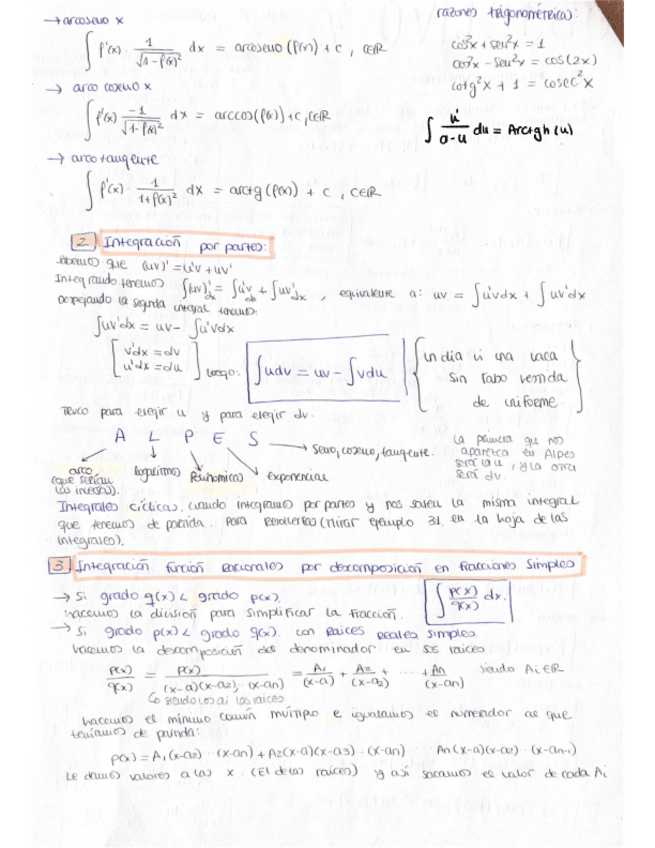 → arcoseno x
∫ f'(x) · 1/√(1-f(x)²) dx = arcoseno (f(x)) + c , c∈ℝ
→ arco coseno x
∫ f'(x) · -1/√(1-f(x)²) dx = arccos(f(x)) + c , c∈ℝ
→ arco tangente
∫ f'(x) · 1/(1+f(x)²) dx = arctg (f(x)) + c , c∈ℝ
razones trigonométricas:
cos²x + sen²x = 1
cos²x - sen²x = cos(2x)
cotg²x + 1 = cosec²x
∫ u'/(a-u) du = Arctgh (u)
2 Integración por partes:
Sabemos que (uv)' = u'v + uv'
Integrando tenemos ∫(uv)'dx = ∫u'v dx + ∫uv'dx , equivalente a: uv = ∫u'vdx + ∫uv'dx
Despejando la segunda integral tenemos:
∫uv'dx = uv - ∫u'vdx
[v'dx = dv
u'dx = du] Luego: ∫udv = uv - ∫vdu
{un dia vi una vaca
sin rabo vestida
de uniforme.}
Truco para elegir u y para elegir dv.
A L P E S
→ seno, coseno, tangente.
arco
(que serían
las inversas)
logaritmos
Polinomicas
exponencial
La primera que nos
aparezca en Alpes
será la u, y la otra
será dv.
Integrales cíclicas: cuando integramos por partes y nos sale la misma integral
que tenemos de partida. Para resolverlas (mirar ejemplo 31, en la hoja de las
integrales).
3 Integración función racionales por descomposición en fracciones simples
→ Si grado q(x) < grado p(x).
hacemos la división para simplificar la fracción.
∫ p(x)/q(x) dx.
→ Si grado p(x) < grado q(x). con Raices Reales simples
hacemos la descomposición del denominador en sus raices
p(x)/q(x) = p(x)/((x-a)(x-a2)·(x-an)) = A1/(x-a) + A2/(x-a2) + ····· + An/(x-an) siendo Ai∈ℝ
↳ siendo los ai las raices
hacemos el mínimo común múltiplo e igualamos el numerador al que
teníamos de partida:
p(x) = A1(x-a2)··(x-an) + A2(x-a)(x-a3)·(x-an) An(x-a)(x-a2)··(x-an-1)
Le damos valores a las x. (El de las raíces) y así sacamos el valor de cada Ai